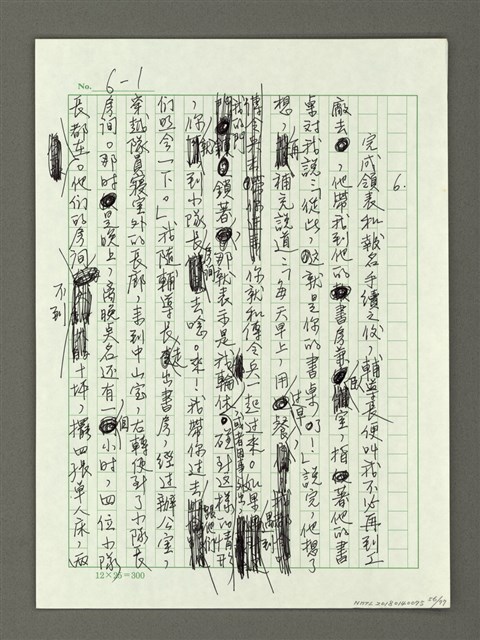 No. 6-1
6.
完成領表和報名手續之後，輔導長便叫我不必再到工
廠去，他帶我到他的書房兼寢室，指著他的書
桌對我說：「從此，這就是你的書桌了！」說完，他想了
想，再補充說道：「每天早上，用過早餐，
你就和傳令兵一起過來。如果遇到
我的門鎖著，那就表示是我輪休或者因事外出，碰到這樣的情形
，你就到小隊長房間去唸。來！我帶你過去跟他們
們照會一下。」我隨輔導長走出書房，經過辦公室，
穿越隊員寢室外的長廊，來到中山室，右轉便到了小隊長
房间。那時是晚上，離晚點名還有一個小時，四位小隊
長都在。他們的房间不到十坪，擺四張單人床，兩
12×25=300
NMTL20180140075 56/77